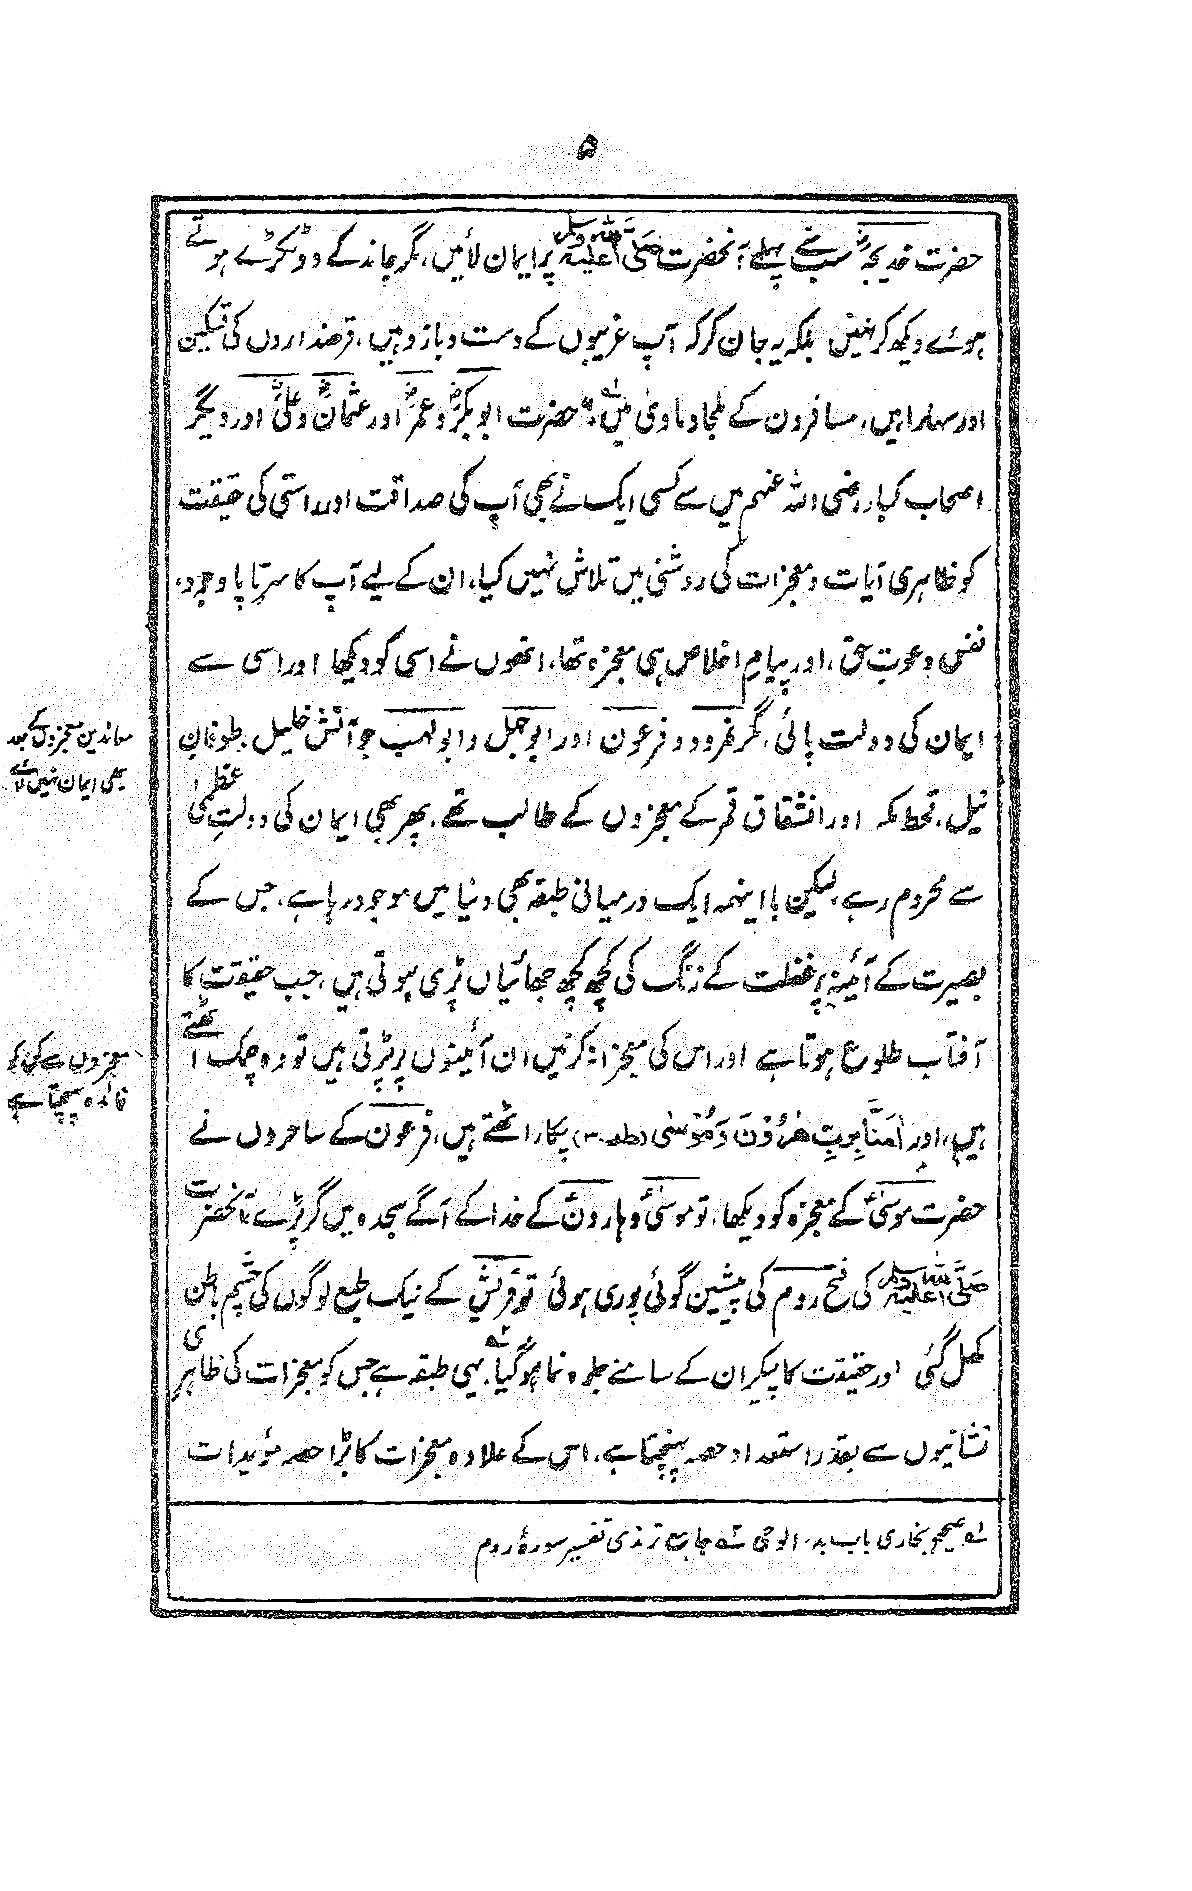 ۵
حضرت خدیجہؓ سب سے پہلے آنحضرت صلی اللہ علیہ وسلم پر ایمان لائیں، مگر چاند کے دو ٹکڑے ہوتے
ہوئے دیکھ کر نہیں بلکہ یہ جان کر کہ آپ غریبوں کے دست و بازو ہیں، قرضداروں کی تسکین
اور سہارا ہیں، مسافرون کے ملجا و ماویٰ ہیں؛ حضرت ابوبکرؓ و عمرؓ اور عثمانؓ و علیؓ اور دیگر
اصحاب کبار رضی اللہ عنہم میں سے کسی ایک نے بھی آپ کی صداقت اور راستی کی حقیقت
کو ظاہری آیات و معجزات کی روشنی میں تلاش نہیں کیا، ان کے لیے آپ کا سرتاپا وجود،
نفس دعوتِ حق، اور پیامِ اخلاص ہی معجزہ تھا، انھوں نے اسی کو دیکھا اور اسی سے
ایمان کی دولت پائی، مگر نمرود و فرعون اور ابوجہل و ابولہب جو آتش خلیل، طوفانِ
نیل، قحط مکہ اور انشقاق قمر کے معجزوں کے طالب تھے، پھر بھی ایمان کی دولتِ عظمیٰ
سے محروم رہے، لیکن بااینہمہ ایک درمیانی طبقہ بھی دنیا میں موجود رہا ہے، جس کے
بصیرت کے آئینہ پر غفلت کے زنگ کی کچھ کچھ جھائیاں پڑی ہوتی ہیں، جب حقیقت کا
آفتاب طلوع ہوتا ہے اور اس کی معجزانہ کرنیں ان آئینوں پر پڑتی ہیں تو وہ چمک اٹھتے
ہیں، اور اٰمَنَّا بِرَبِّ هٰرُوْنَ وَمُوْسٰی (طہ۔۳) پکار اٹھتے ہیں، فرعون کے ساحروں نے
حضرت موسیٰؑ کے معجزہ کو دیکھا، تو موسیٰؑ و ہارونؑ کے خدا کے آگے سجدہ میں گر پڑے، آنحضرت
صلی اللہ علیہ وسلم کی فتح روم کی پیشین گوئی پوری ہوئی تو قریش کے نیک طبع لوگوں کی چشم باطن
کھل گئی اور حقیقت کا پیکر ان کے سامنے جلوہ نما ہوگیا۔ یہی طبقہ ہے جس کو معجزات کی ظاہری
نشانیوں سے بقدر استعداد حصہ پہنچتا ہے، اس کے علاوہ معجزات کا بڑا حصہ مؤیدات
معاندین معجزوں کے بعد
بھی ایمان نہیں لاتے
معجزوں سے کس کو
فائدہ پہنچتا ہے
لہ صحیح بخاری باب بدء الوحی ۲ہ جامع ترمذی تفسیر سورۂ روم